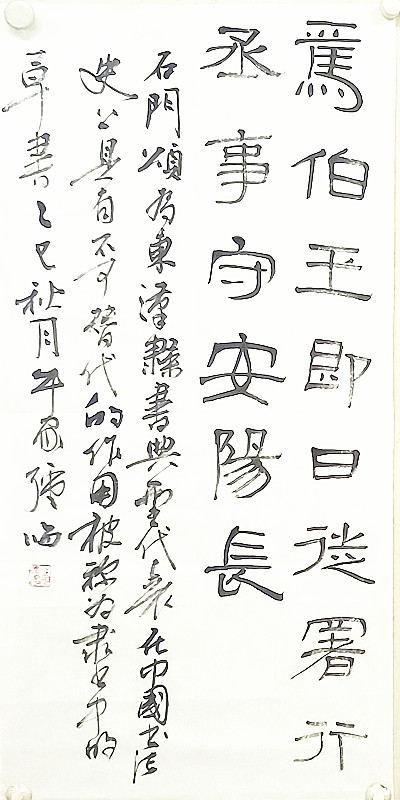 篤伯玉即日徙署行
丞事守安陽長
石門頌為東漢隸書典型代表在中國書法
史上具有不可替代的作用被称为隶书中的
草書乙巳秋月午 強臨